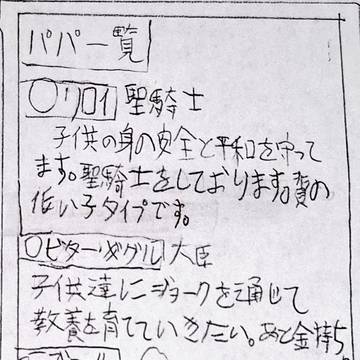 パパ一覧
○リロイ 聖騎士
子供の身の安全と平和を守って
ます。聖騎士をしております。質の
低い子タイプです。
○ピター・ダグル 大臣
子供達にジョークを通じて
教養を育てていきたい。あと金持ち